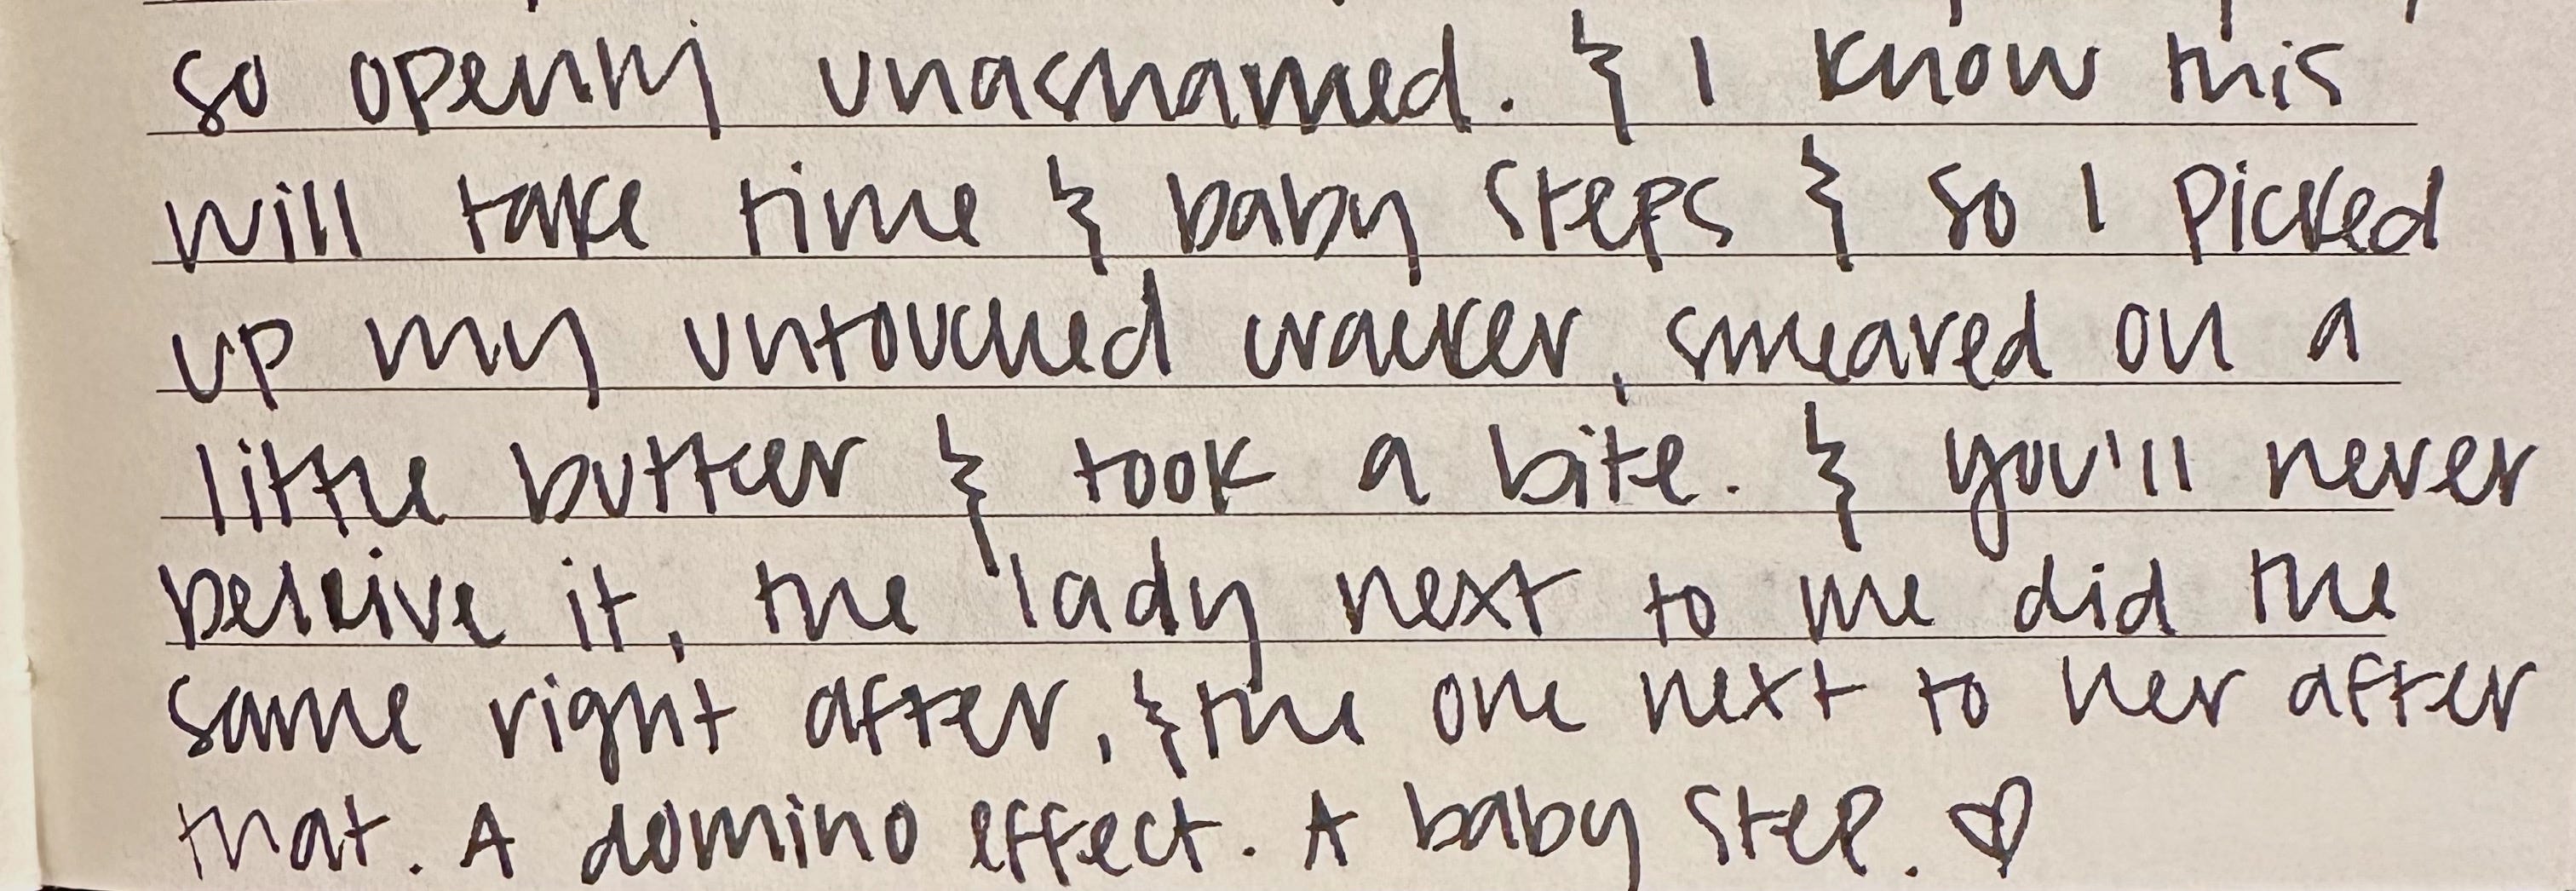 so openly unashamed. & I know this
will take time & baby steps & so I picked
up my untouched cracker, smeared on a
little butter & took a bite. & you'll never
beleive it, the lady next to me did the
same right after, & the one next to her after
that. A domino effect. A baby step. ♡